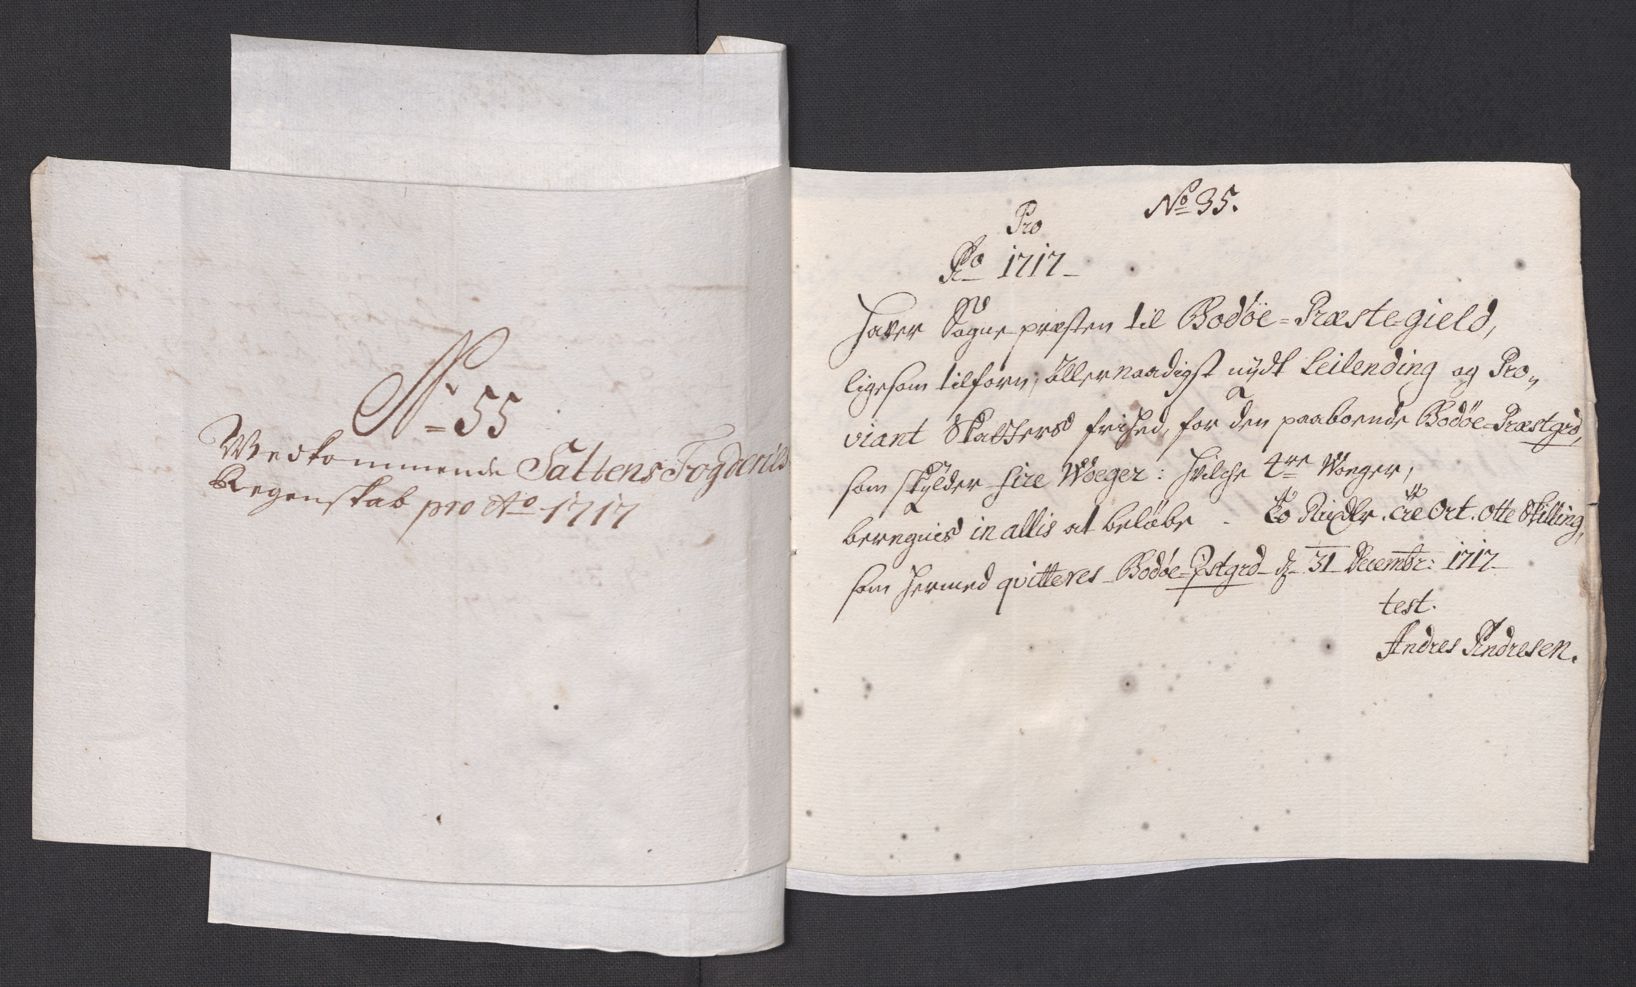 No 55
Wedkommende Saltens Fogderies
Regenskab pro Ao 1717
No 35.
Pro
Ao 1717
Hafver Sogne præsten til Bodøe-Præste-gield,
ligesom tilforn, allernaadigst nydt Leilending og Pro„
viant Skatters frihed, for den paaboende Bodøe-Præstgrd,
som skylder fire Woeger: hvilche 4re Woeger,
beregnes in allis at beløbe - To Rixdlr. tre Ort. Otte Skilling,
som hermed qvitteres Bodøe-Pstgrd d 31 Decembr: 1717
test.
Andres Andresen.